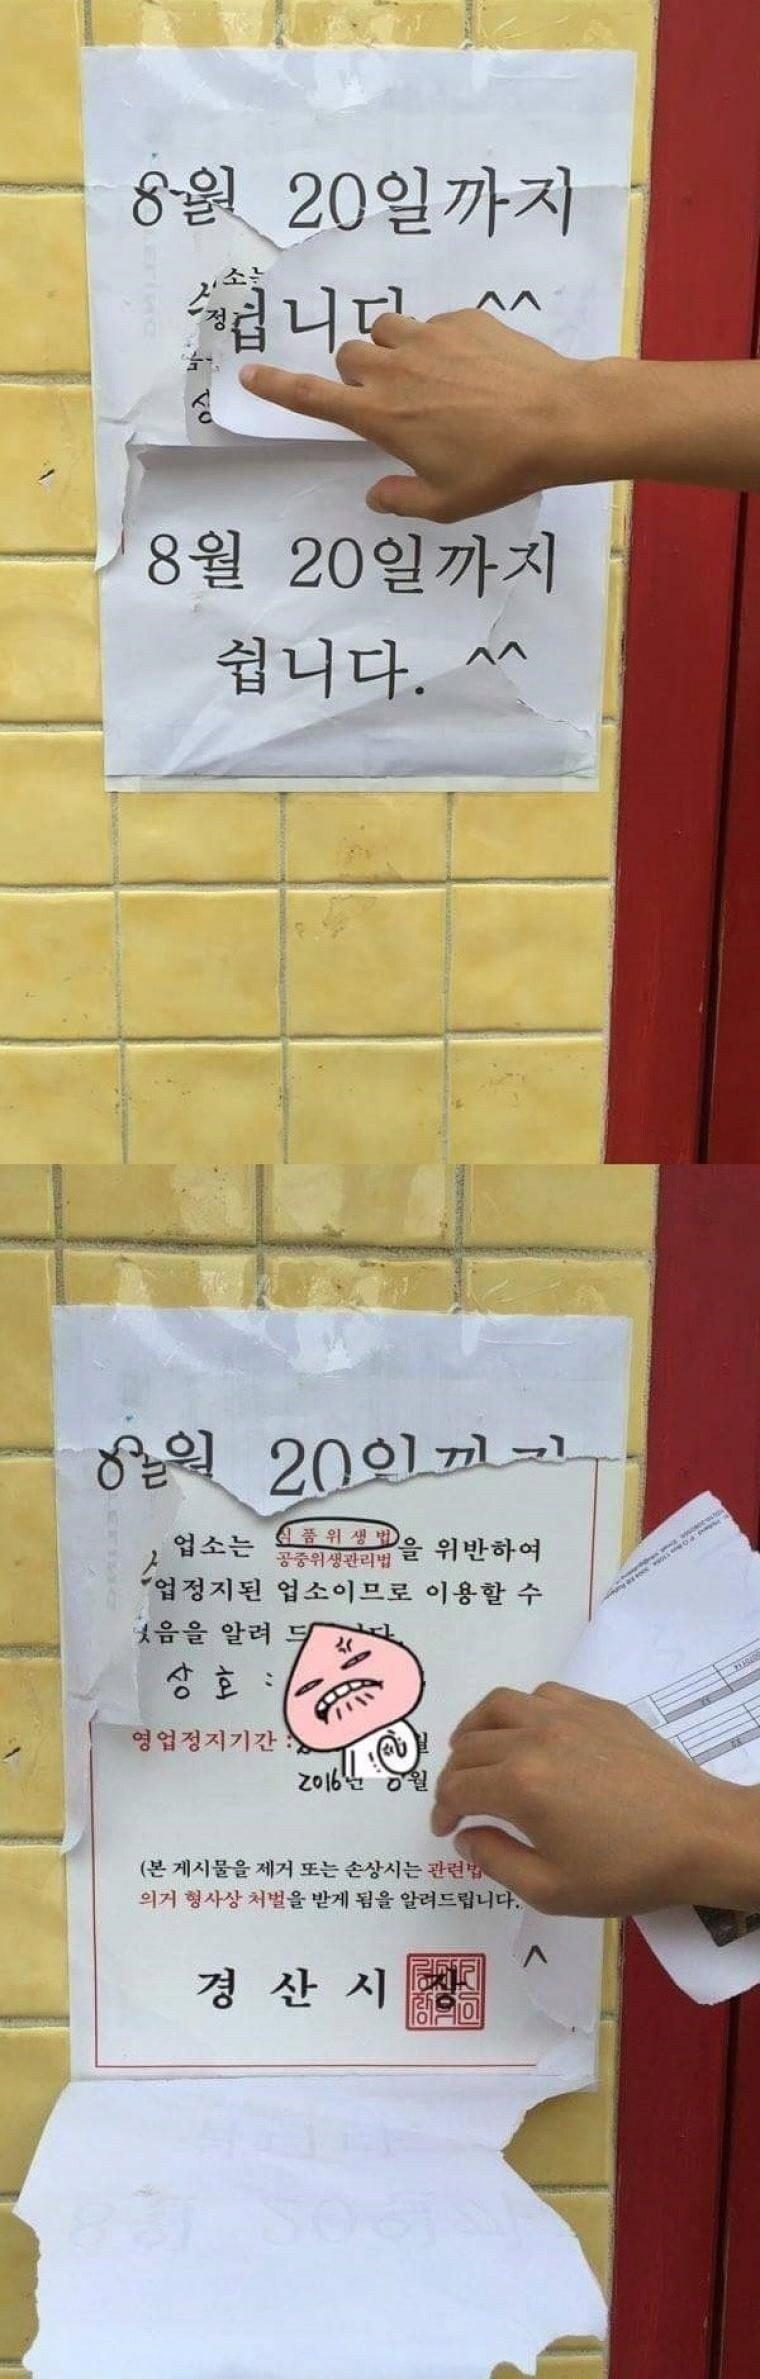 8월 20일까지
쉽니다. ^^
8월 20일까지
쉽니다. ^^
8월 20일까지
업소는 식품위생법
공중위생관리법 을 위반하여
업정지된 업소이므로 이용할 수
음을 알려 드
상 호 :
영업정지기간 :
2016년 8월
(본 게시물을 제거 또는 손상시는 관련법
의거 형사상 처벌을 받게 됨을 알려드립니다.
^
경 산 시 장